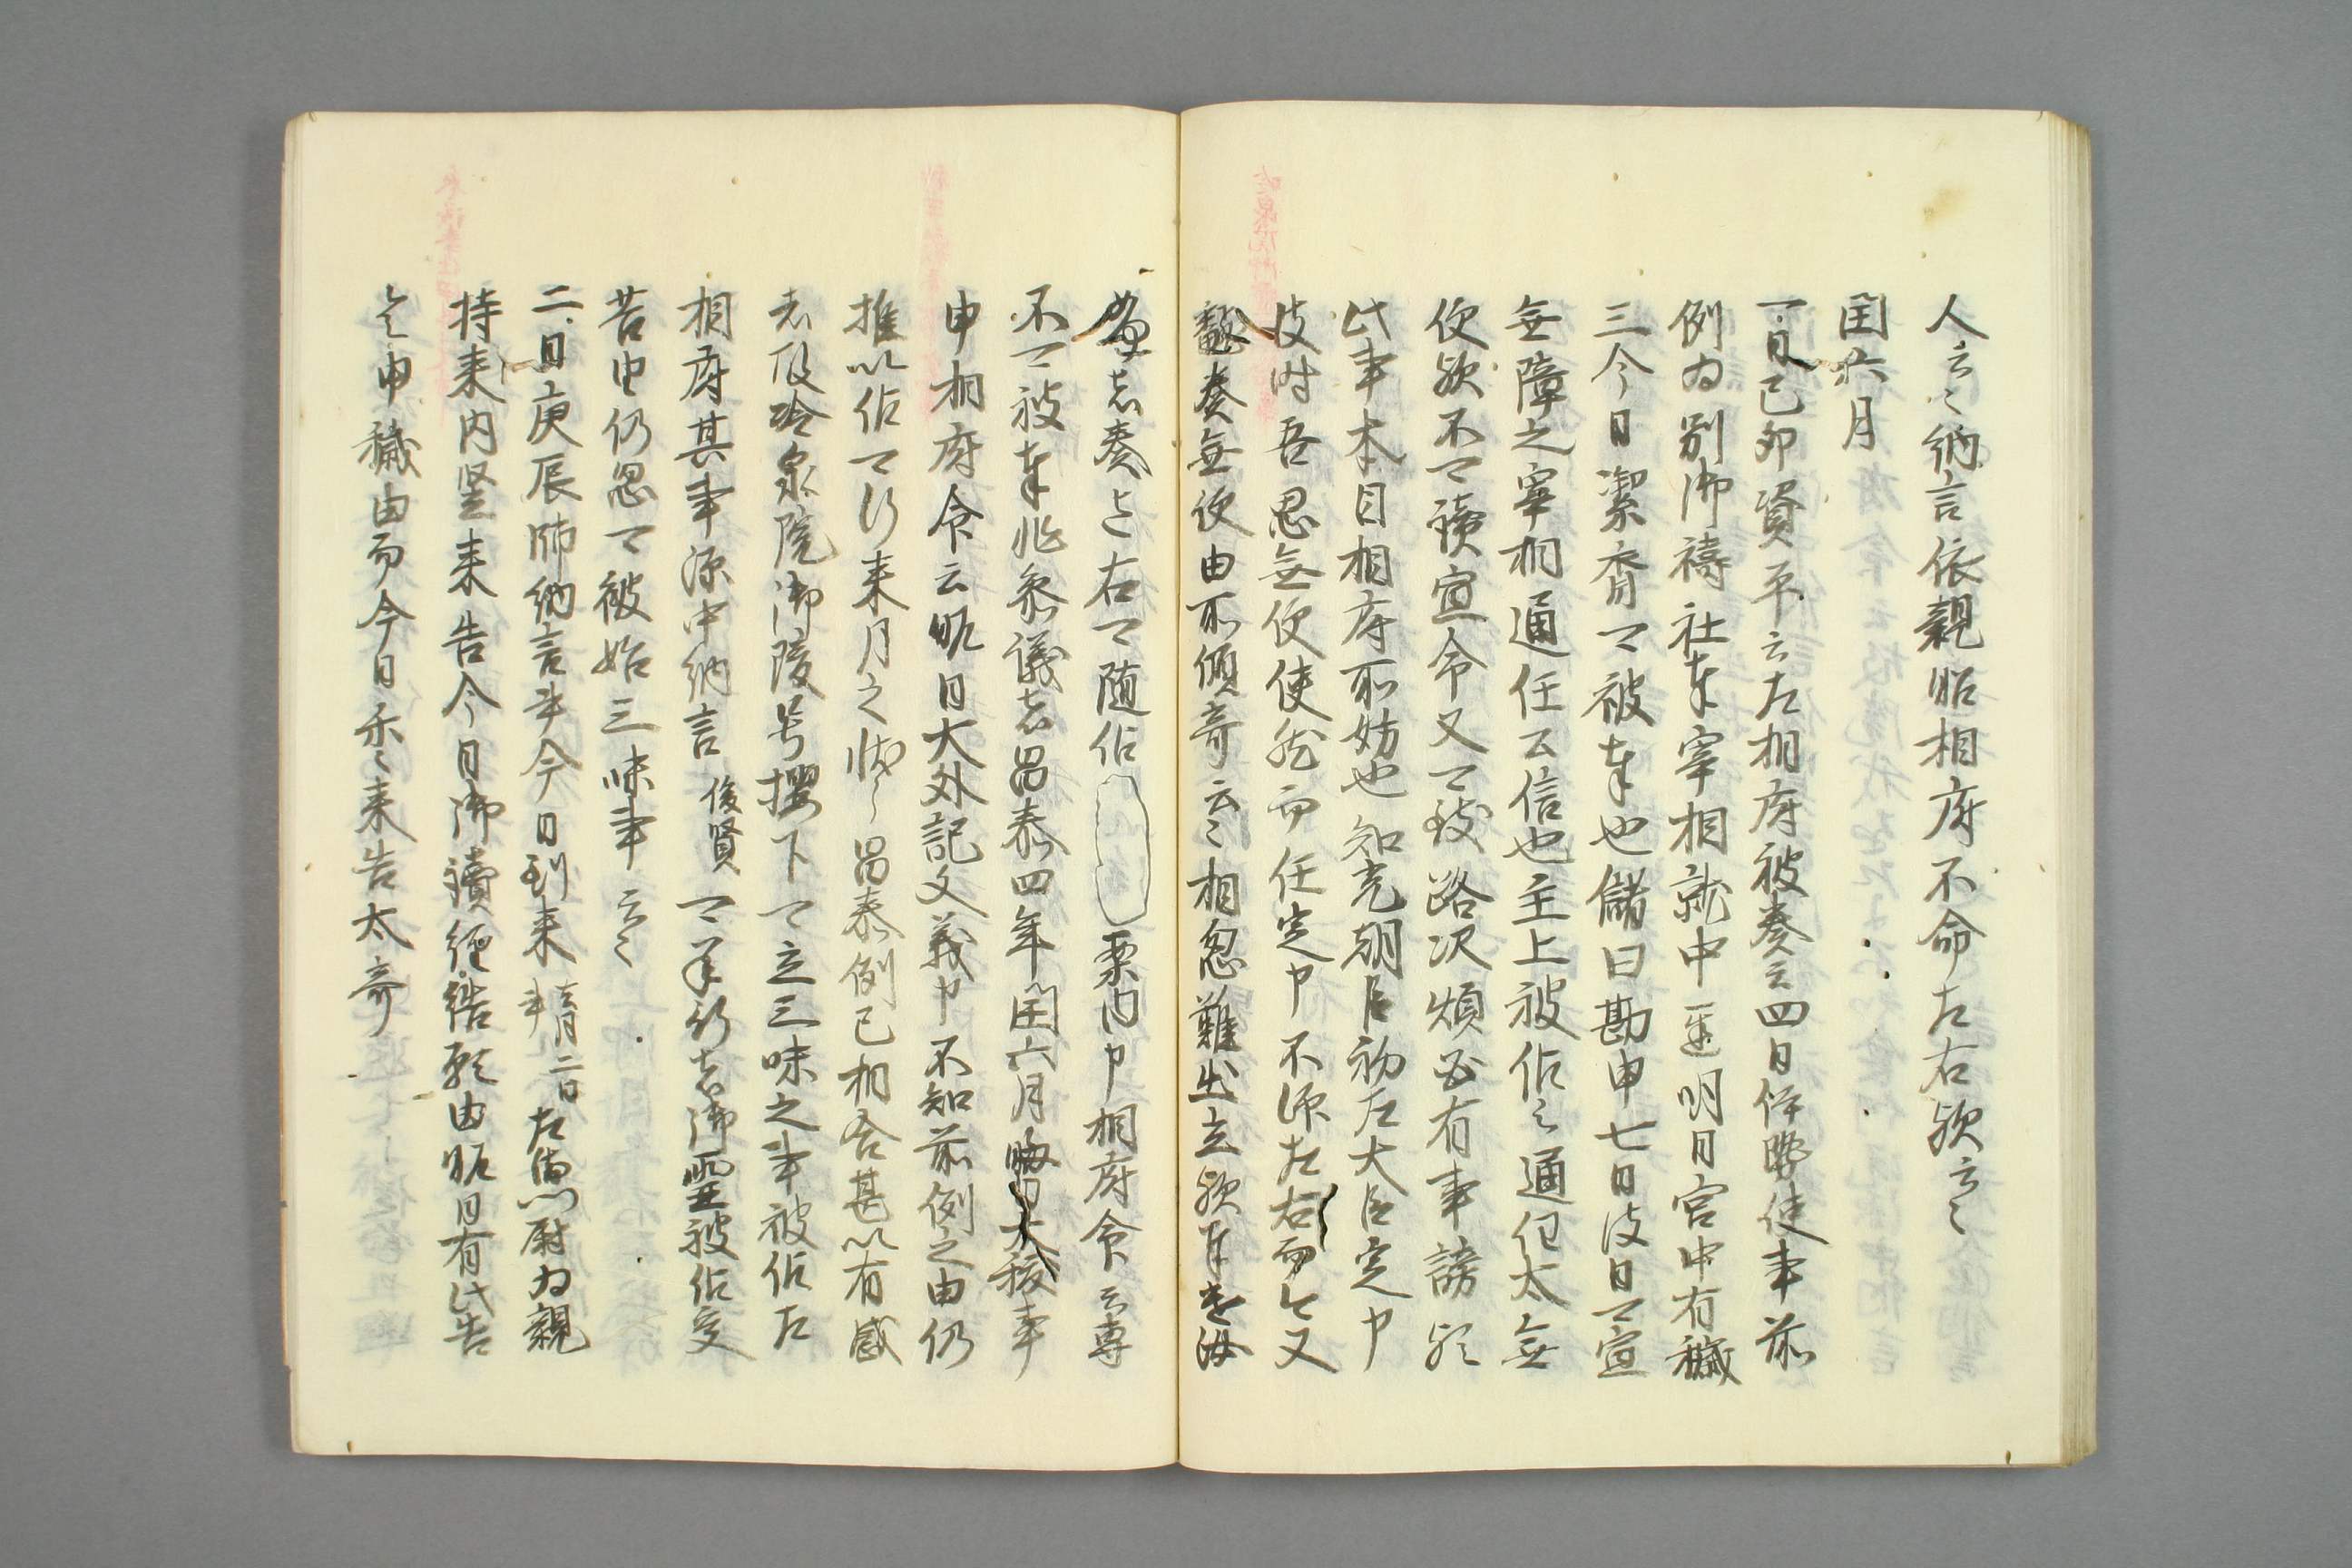 人云々納言依親昵相府不命左右歟云々
閏六月
一日己卯資平云左相府被奏云四日伊勢使事前
例為別御祷社奉宰相就中近明日宮中有穢
三今日潔斎可被奉也儲日勘申七日彼日可宣
無障之宰相通任云信也主上被仰云通任太無
便歟不可読宣命又可致路次煩必有事謗歟
此事本自相府所妨也知光朝臣初左大臣定申
彼時吾思無便使然而任定申不陳左右而今又
翻奏無便由所傾奇云々相忽難出立歟奉
者奏之右可随仰 案内申相府命云専
不可被奉非参議者昌泰四年閏六月晦日大祓事
申相府命云昵日大外記文義申不知前例之由仍
推以仰可行来月之祓昌泰例已相合甚以有感
者故冷泉院御陵号櫻下可立三昧之事被仰左
相府其事源中納言俊賢可奉行者御霊被仰受
苦由仍忽可被始三昧事云々
二日庚辰師納言事今日到来去月二日左衛門尉為親
持来内竪来告今日御読経結願由昵日有此告
令申穢由而今日示々来告太奇